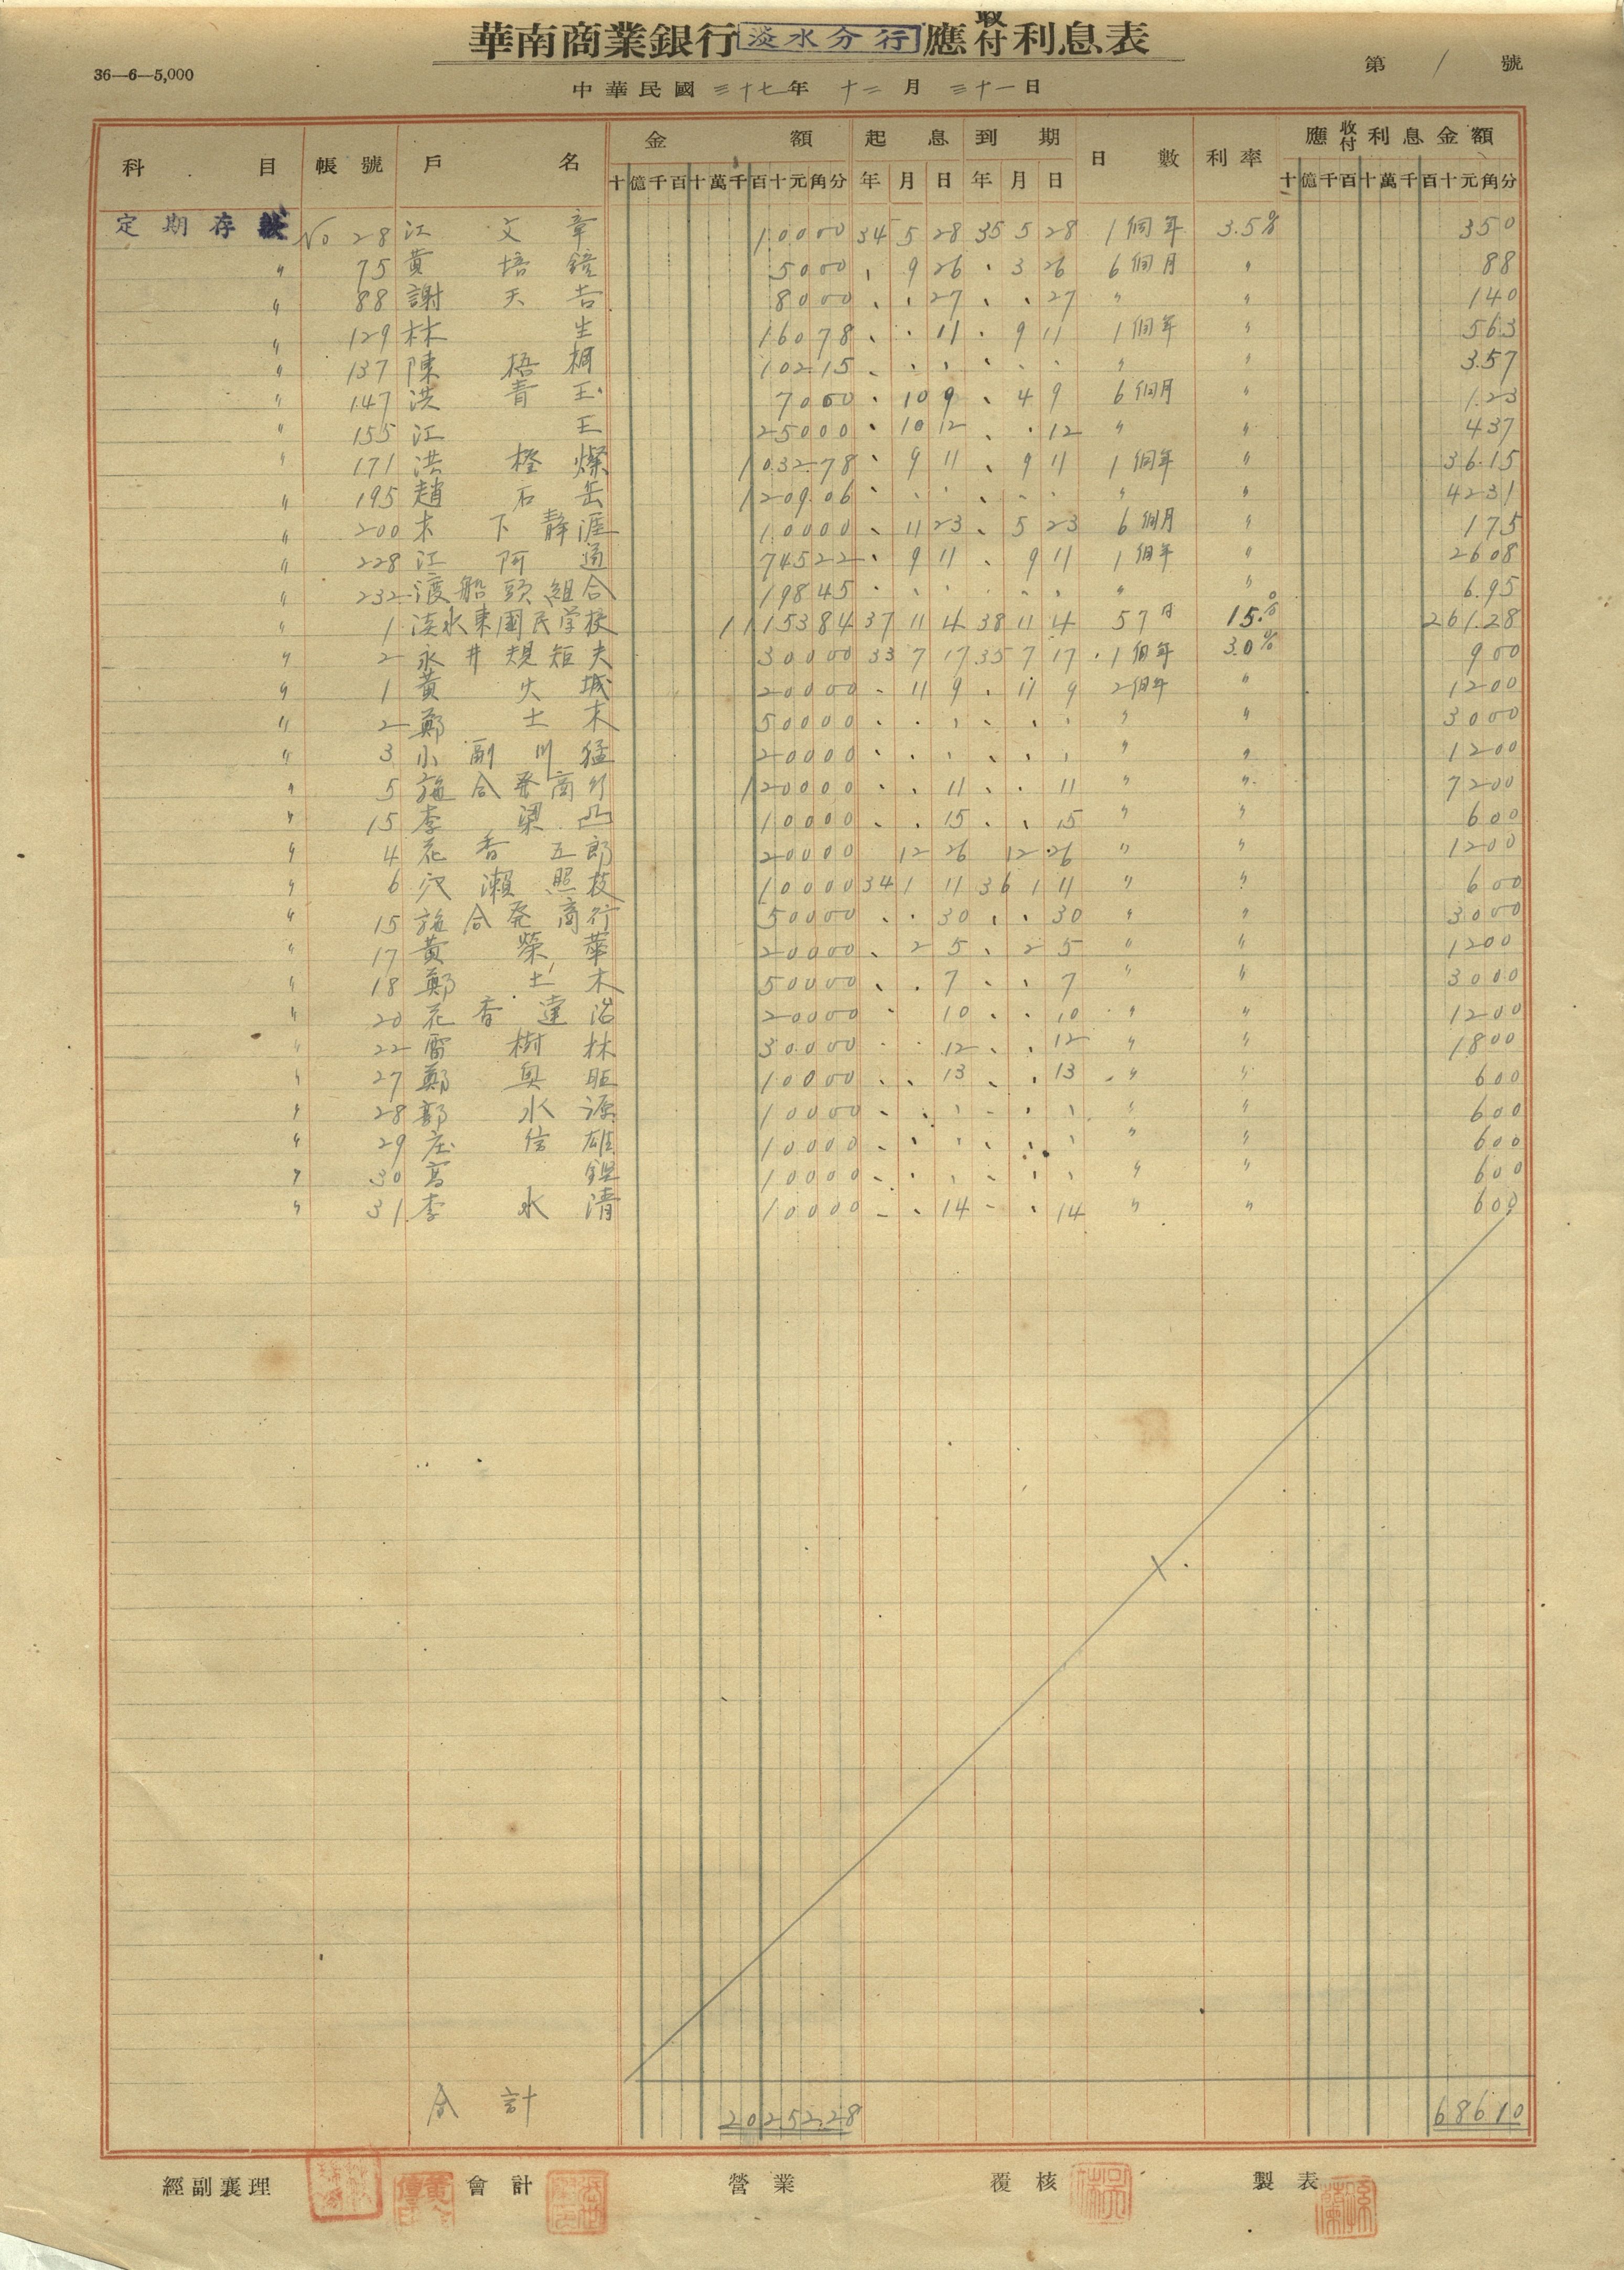 華南商業銀行 淡水分行 應收付利息表
36—6—5,000
第 1 號
中華民國 三十七年 十二月 三十一日
科目 帳號 戶名 金額 起息 到期 日數 利率 應收付利息金額
十億千百十萬千百十元角分 年月日 年月日 十億千百十萬千百十元角分
定期存款 No 28 江文章 10000 34 5 28 35 5 28 1個年 3.5% 350
〃 75 黃培鐙 5000 、 9 26 、 3 26 6個月 〃 88
〃 88 謝天吉 8000 、 、 27 、 、 27 〃 〃 140
〃 129 林生 16078 、 、 11 、 9 11 1個年 〃 563
〃 137 陳梧桐 10215 、 、 、 、 、 、 〃 〃 357
〃 147 洪青玉 7000 、 10 9 、 4 9 6個月 〃 123
〃 155 江王 25000 、 10 12 、 、 12 〃 〃 437
〃 171 洪橙燦 103278 、 9 11 、 9 11 1個年 〃 3615
〃 195 趙石岳 120906 、 、 、 、 、 、 〃 〃 4231
〃 200 木下静涯 10000 、 11 23 、 5 23 6個月 〃 175
〃 228 江阿通 74522 、 9 11 、 9 11 1個年 〃 2608
〃 232 渡船頭組合 19845 、 、 、 、 、 、 〃 〃 695
〃 1 淡水東國民学校 1115384 37 11 4 38 11 4 57日 15% 26128
〃 2 永井規矩夫 30000 33 7 17 35 7 17 1個年 3.0% 900
〃 1 黃火城 20000 、 11 9 、 11 9 2個年 〃 1200
〃 2 鄭土木 50000 、 、 、 、 、 、 〃 〃 3000
〃 3 小副川猛 20000 、 、 、 、 、 、 〃 〃 1200
〃 5 施合発商行 120000 、 、 11 、 、 11 〃 〃 7200
〃 15 李梁凸 10000 、 、 15 、 、 15 〃 〃 600
〃 4 花香五郎 20000 12 26 12 26 〃 〃 1200
〃 6 穴瀨照枝 10000 34 1 11 36 1 11 〃 〃 600
〃 15 施合発商行 50000 、 、 30 、 、 30 〃 〃 3000
〃 17 黃榮華 20000 、 2 5 、 2 5 〃 〃 1200
〃 18 鄭土木 50000 、 、 7 、 、 7 〃 〃 3000
〃 20 花香達治 20000 、 10 、 、 10 〃 〃 1200
〃 22 雷樹林 30000 、 、 12 、 、 12 〃 〃 1800
〃 27 鄭奥旺 10000 、 、 13 、 、 13 〃 〃 600
〃 28 郭水源 10000 、 、 、 、 、 、 〃 〃 600
〃 29 庄信雄 10000 、 、 、 、 、 、 〃 〃 600
〃 30 高 10000 、 、 、 、 、 、 〃 〃 600
〃 31 李水清 10000 、 、 14 、 、 14 〃 〃 600
合計 2025228 68610
經副襄理 會計 營業 覆核 製表